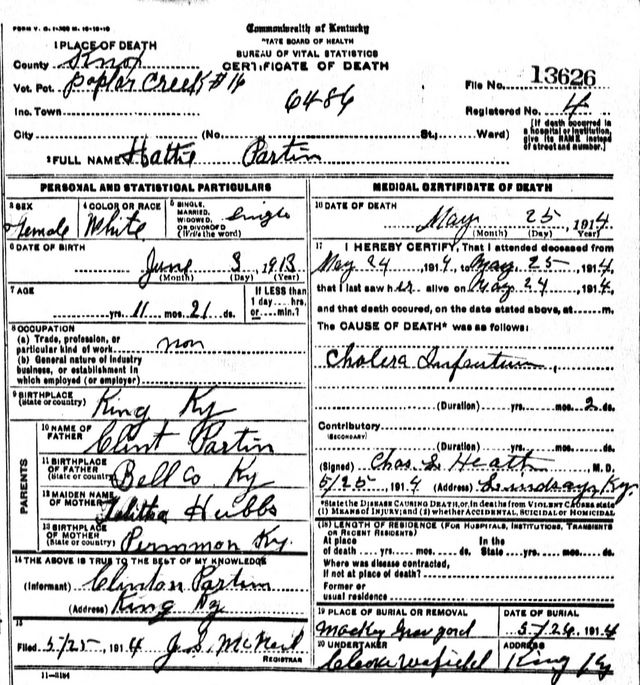 FORM V. S. 1-
Commonwealth of Kentucky
STATE BOARD OF HEALTH
BUREAU OF VITAL STATISTICS
CERTIFICATE OF DEATH
1 PLACE OF DEATH
County Knox
Vot. Pct. Poplar Creek #16
Inc. Town
City (No. St.; Ward)
6486
File No. 13626
Registered No. 4
[If death occurred in a hospital or institution, give its NAME instead of street and number.]
2 FULL NAME Hattie Partin
PERSONAL AND STATISTICAL PARTICULARS
3 SEX Female
4 COLOR OR RACE White
5 SINGLE, MARRIED, WIDOWED, OR DIVORCED (Write the word) Single
6 DATE OF BIRTH
June 3, 1913
(Month) (Day) (Year)
7 AGE
yrs. 11 mos. 21 ds.
If LESS than 1 day....hrs. or....min.?
8 OCCUPATION
(a) Trade, profession, or particular kind of work non
(b) General nature of industry business, or establishment in which employed (or employer)
9 BIRTHPLACE
(State or country) King Ky
PARENTS
10 NAME OF FATHER Clint Partin
11 BIRTHPLACE OF FATHER
(State or country) Bell Co Ky
12 MAIDEN NAME OF MOTHER Hubbs
13 BIRTHPLACE OF MOTHER
(State or country) Ky.
14 THE ABOVE IS TRUE TO THE BEST OF MY KNOWLEDGE
(Informant) Clinton Partin
(Address) King Ky
15
Filed 5/25, 1914 J. S. McNeil
REGISTRAR
11-3184
MEDICAL CERTIFICATE OF DEATH
16 DATE OF DEATH
May 25, 1914
(Month) (Day) (Year)
17 I HEREBY CERTIFY, That I attended deceased from
May 24, 1914, to May 25, 1914,
that I last saw her alive on May 24, 1914,
and that death occured, on the date stated above, at....m.
The CAUSE OF DEATH* was as follows:
Cholera Infantum,
(Duration) yrs. mos. 2 ds.
Contributory
(SECONDARY)
(Duration) yrs. mos. ds.
(Signed) Chas. S. Heath, M. D.
5/25, 1914 (Address) Lindsay, Ky.
*State the DISEASE CAUSING DEATH, or, in deaths from VIOLENT CAUSES state
(1) MEANS OF INJURY; and (2) whether ACCIDENTAL, SUICIDAL or HOMICIDAL
18 LENGTH OF RESIDENCE (FOR HOSPITALS, INSTITUTIONS, TRANSIENTS OR RECENT RESIDENTS)
At place of death yrs. mos. ds. In the State yrs. mos. ds.
Where was disease contracted, if not at place of death?
Former or usual residence
19 PLACE OF BURIAL OR REMOVAL
DATE OF BURIAL
Mackey 5/26, 1914
20 UNDERTAKER
ADDRESS
King Ky